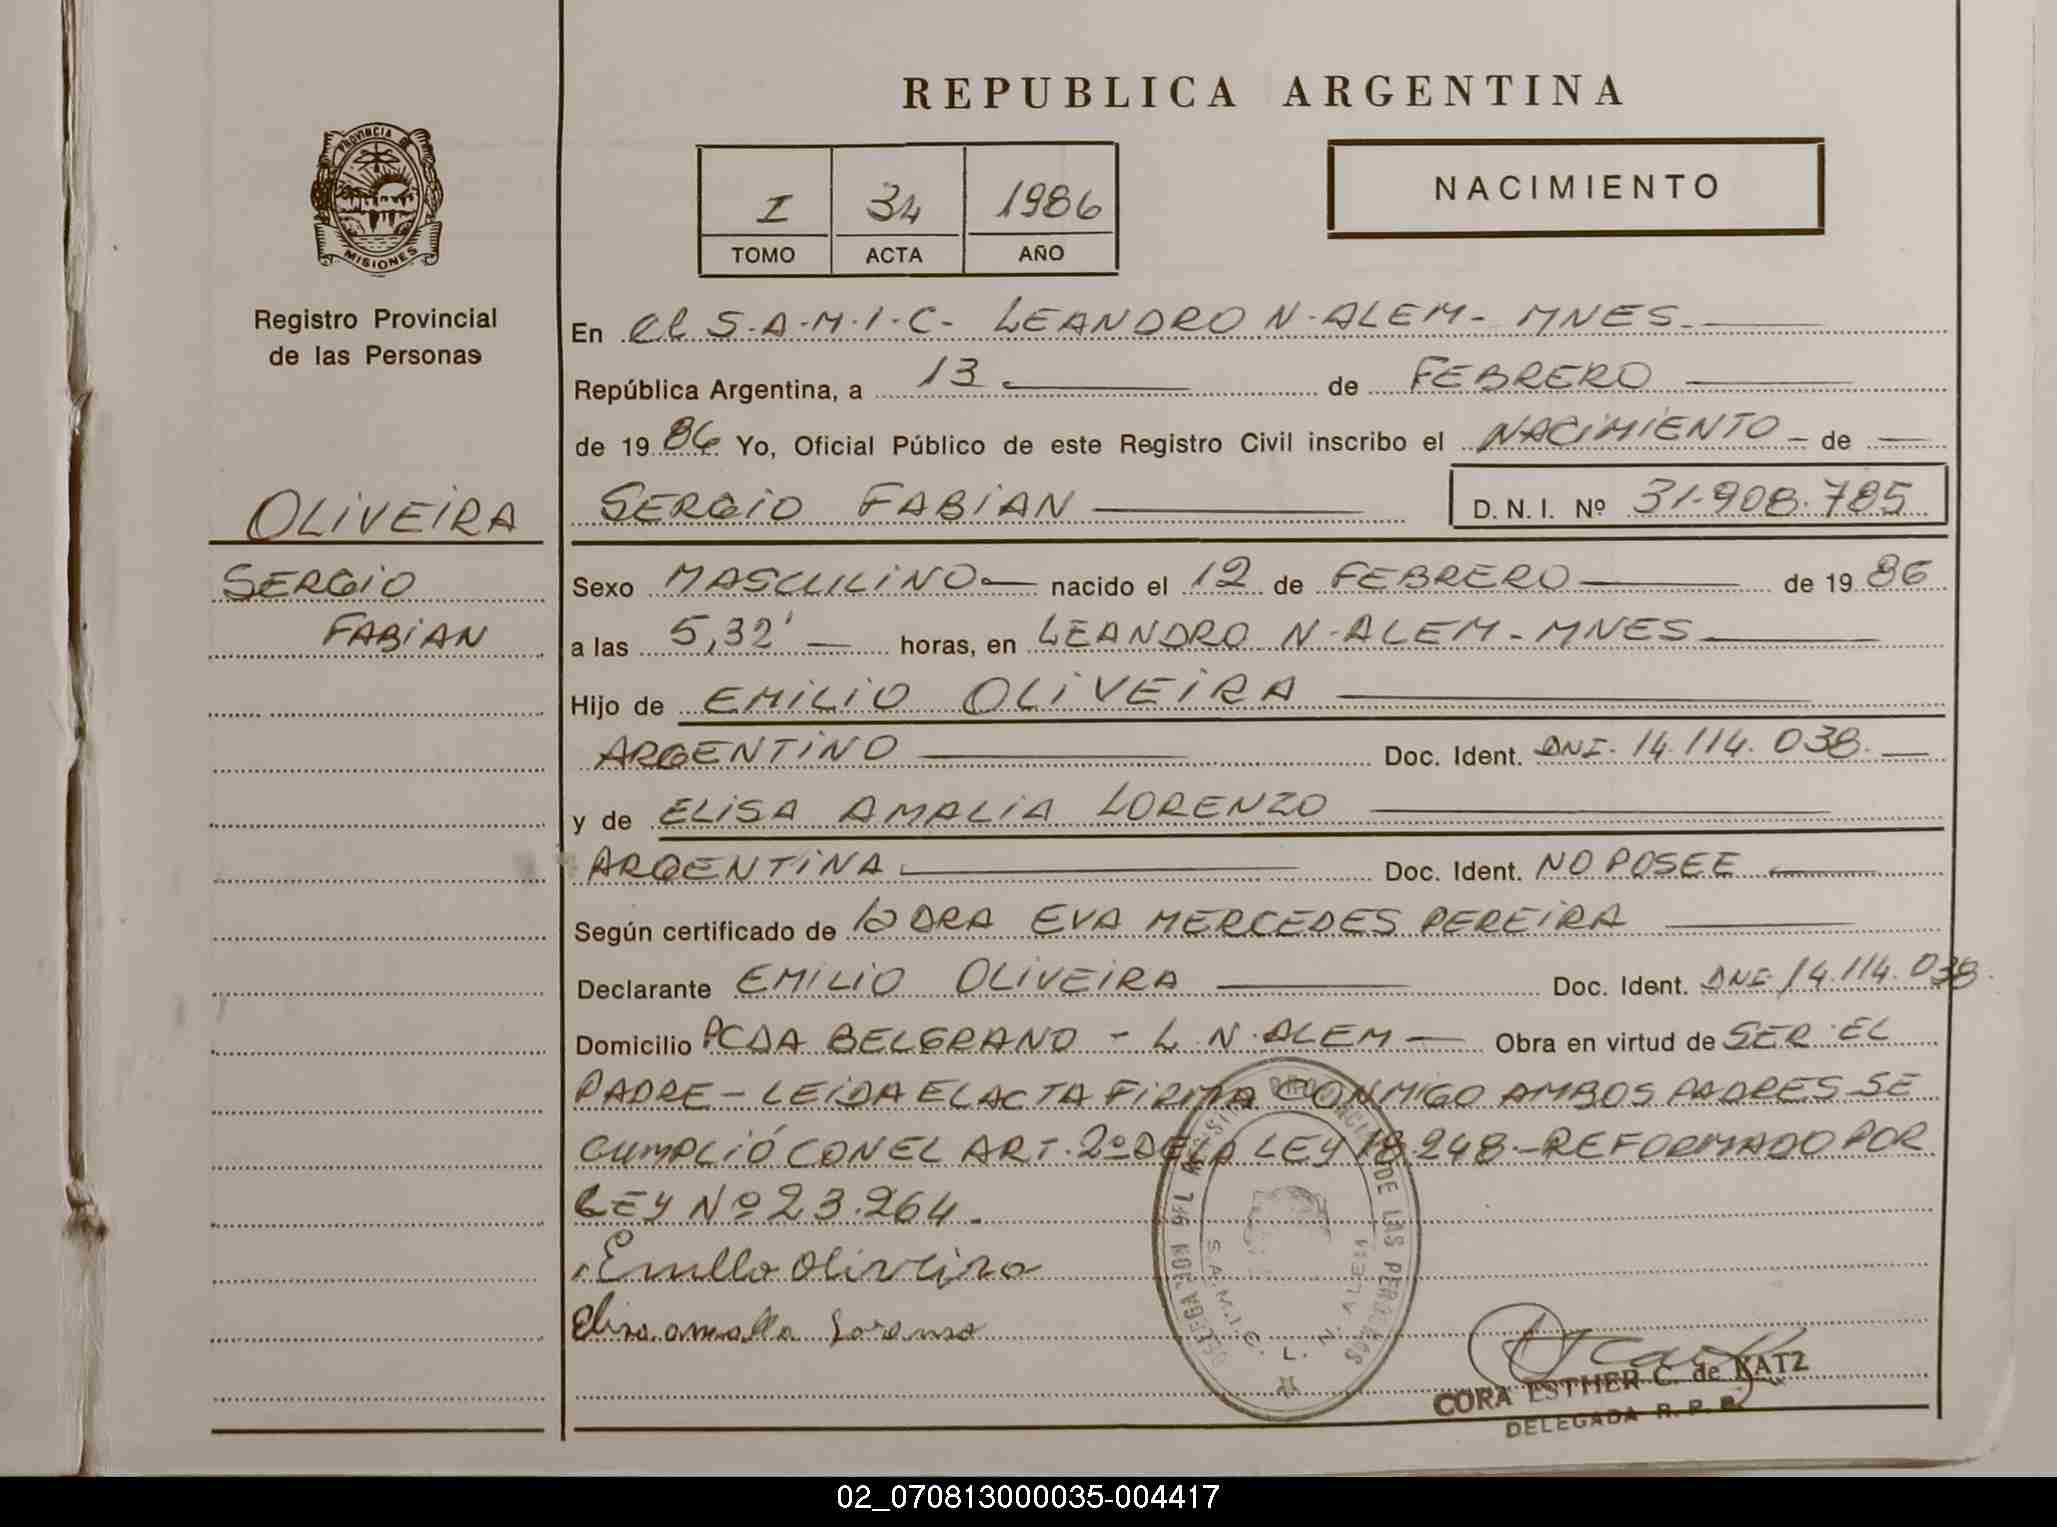 REPUBLICA ARGENTINA
PROVINCIA DE
MISIONES
Registro Provincial
de las Personas
I 34 1986
TOMO ACTA AÑO
NACIMIENTO
En el S.A.M.I.C- LEANDRO N. ALEM- MNES.
República Argentina, a 13 de FEBRERO
de 19 86 Yo, Oficial Público de este Registro Civil inscribo el NACIMIENTO - de
OLIVEIRA
SERGIO FABIAN
D. N. I. Nº 31.908.785
SERGIO
FABIAN
Sexo MASCULINO nacido el 12 de FEBRERO de 19 86
a las 5,32' horas, en LEANDRO N. ALEM - MNES
Hijo de EMILIO OLIVEIRA
ARGENTINO Doc. Ident. DNI. 14.114.038.
y de ELISA AMALIA LORENZO
ARGENTINA Doc. Ident. NO POSEE
Según certificado de la DRA EVA MERCEDES PEREIRA
Declarante EMILIO OLIVEIRA Doc. Ident. DNI 14.114.038.
Domicilio PCDA BELGRANO - L. N. ALEM Obra en virtud de SER EL
PADRE - LEIDA EL ACTA FIRMA CONMIGO AMBOS PADRES SE
CUMPLIÓ CON EL ART. 2º DE LA LEY 18.248.- REFORMADO POR
LEY Nº 23.264.
Emilio Oliveira
Elisa amalia Lorenso
DE LAS PERSONAS
S.A.M.I.C. L. N. ALEM
CORA ESTHER C. de KATZ
DELEGADA R. P. P.
02_070813000035-004417